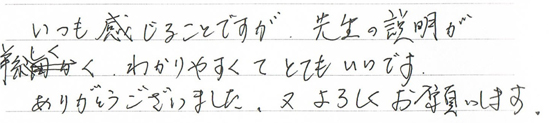 いつも感じることですが、先生の説明が
詳しく、わかりやすくてとてもいいです。
ありがとうございました。又よろしくお願いします。